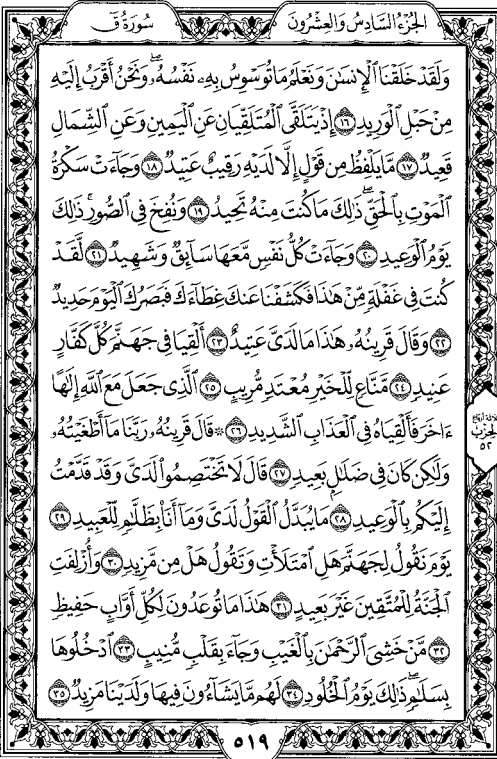 الجُزْءُ السَّادِسُ وَالعِشْرُونَ
سُورَةُ قٓ
وَلَقَدْ خَلَقْنَا ٱلْإِنسَٰنَ وَنَعْلَمُ مَا تُوَسْوِسُ بِهِۦ نَفْسُهُۥ ۖ وَنَحْنُ أَقْرَبُ إِلَيْهِ
مِنْ حَبْلِ ٱلْوَرِيدِ ١٦ إِذْ يَتَلَقَّى ٱلْمُتَلَقِّيَانِ عَنِ ٱلْيَمِينِ وَعَنِ ٱلشِّمَالِ
قَعِيدٌ ١٧ مَّا يَلْفِظُ مِن قَوْلٍ إِلَّا لَدَيْهِ رَقِيبٌ عَتِيدٌ ١٨ وَجَآءَتْ سَكْرَةُ
ٱلْمَوْتِ بِٱلْحَقِّ ۖ ذَٰلِكَ مَا كُنتَ مِنْهُ تَحِيدُ ١٩ وَنُفِخَ فِى ٱلصُّورِ ۚ ذَٰلِكَ
يَوْمُ ٱلْوَعِيدِ ٢٠ وَجَآءَتْ كُلُّ نَفْسٍ مَّعَهَا سَآئِقٌ وَشَهِيدٌ ٢١ لَّقَدْ
كُنتَ فِى غَفْلَةٍ مِّنْ هَٰذَا فَكَشَفْنَا عَنكَ غِطَآءَكَ فَبَصَرُكَ ٱلْيَوْمَ حَدِيدٌ
٢٢ وَقَالَ قَرِينُهُۥ هَٰذَا مَا لَدَىَّ عَتِيدٌ ٢٣ أَلْقِيَا فِى جَهَنَّمَ كُلَّ كَفَّارٍ
عَنِيدٍ ٢٤ مَّنَّاعٍ لِّلْخَيْرِ مُعْتَدٍ مُّرِيبٍ ٢٥ ٱلَّذِى جَعَلَ مَعَ ٱللَّهِ إِلَٰهًا
ءَاخَرَ فَأَلْقِيَاهُ فِى ٱلْعَذَابِ ٱلشَّدِيدِ ٢٦ ۞ قَالَ قَرِينُهُۥ رَبَّنَا مَآ أَطْغَيْتُهُۥ
وَلَٰكِن كَانَ فِى ضَلَٰلٍۭ بَعِيدٍ ٢٧ قَالَ لَا تَخْتَصِمُوا۟ لَدَىَّ وَقَدْ قَدَّمْتُ
إِلَيْكُم بِٱلْوَعِيدِ ٢٨ مَا يُبَدَّلُ ٱلْقَوْلُ لَدَىَّ وَمَآ أَنَا۠ بِظَلَّٰمٍ لِّلْعَبِيدِ ٢٩
يَوْمَ نَقُولُ لِجَهَنَّمَ هَلِ ٱمْتَلَأْتِ وَتَقُولُ هَلْ مِن مَّزِيدٍ ٣٠ وَأُزْلِفَتِ
ٱلْجَنَّةُ لِلْمُتَّقِينَ غَيْرَ بَعِيدٍ ٣١ هَٰذَا مَا تُوعَدُونَ لِكُلِّ أَوَّابٍ حَفِيظٍ
٣٢ مَّنْ خَشِىَ ٱلرَّحْمَٰنَ بِٱلْغَيْبِ وَجَآءَ بِقَلْبٍ مُّنِيبٍ ٣٣ ٱدْخُلُوهَا
بِسَلَٰمٍ ۖ ذَٰلِكَ يَوْمُ ٱلْخُلُودِ ٣٤ لَهُم مَّا يَشَآءُونَ فِيهَا وَلَدَيْنَا مَزِيدٌ ٣٥
الحِزْب
٥٢
٥١٩